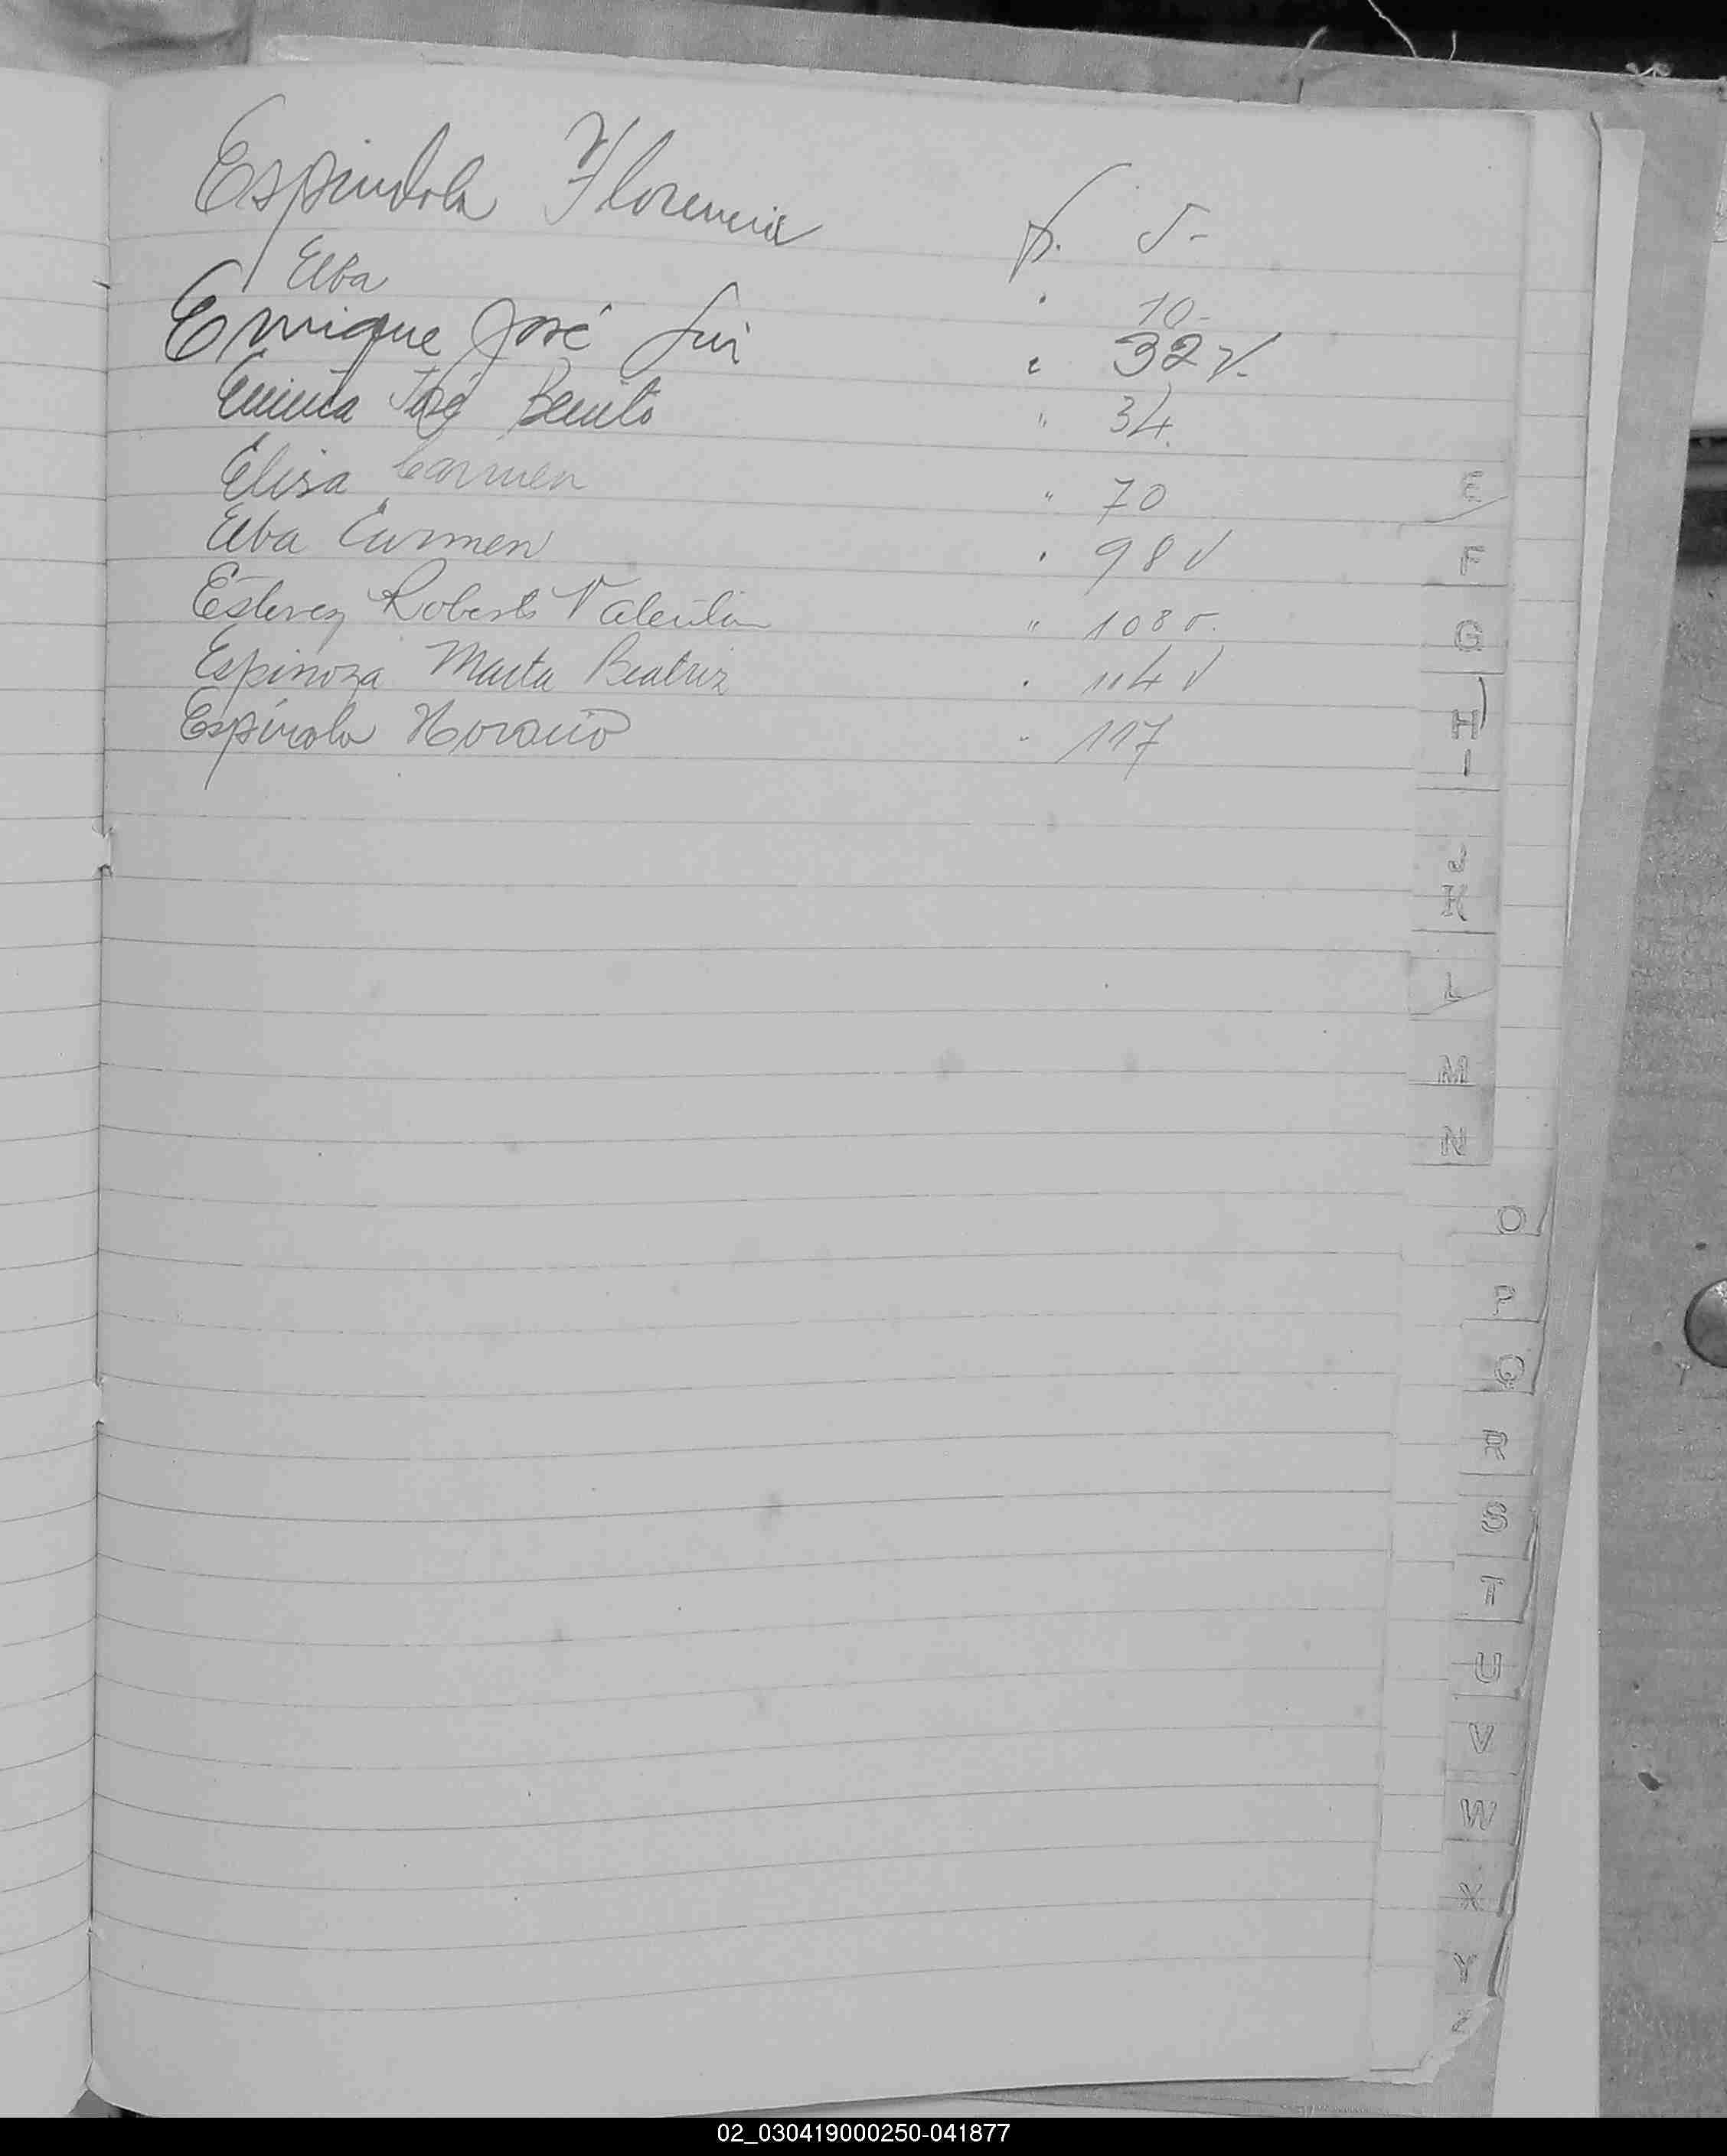 Espindola Florencia f. 5-
Elba " 10-
Enrique José Luis " 32 v.
Emma José Benito " 34.
Elisa Carmen " 70
Elba Carmen " 98 v
Estevez Roberto Valentin " 108 v.
Espinoza Marta Beatriz " 114 v
Espínola Horacio " 117
E
F
G
H
I
J
K
L
M
N
O
P
Q
R
S
T
U
V
W
X
Y
Z
02_030419000250-041877